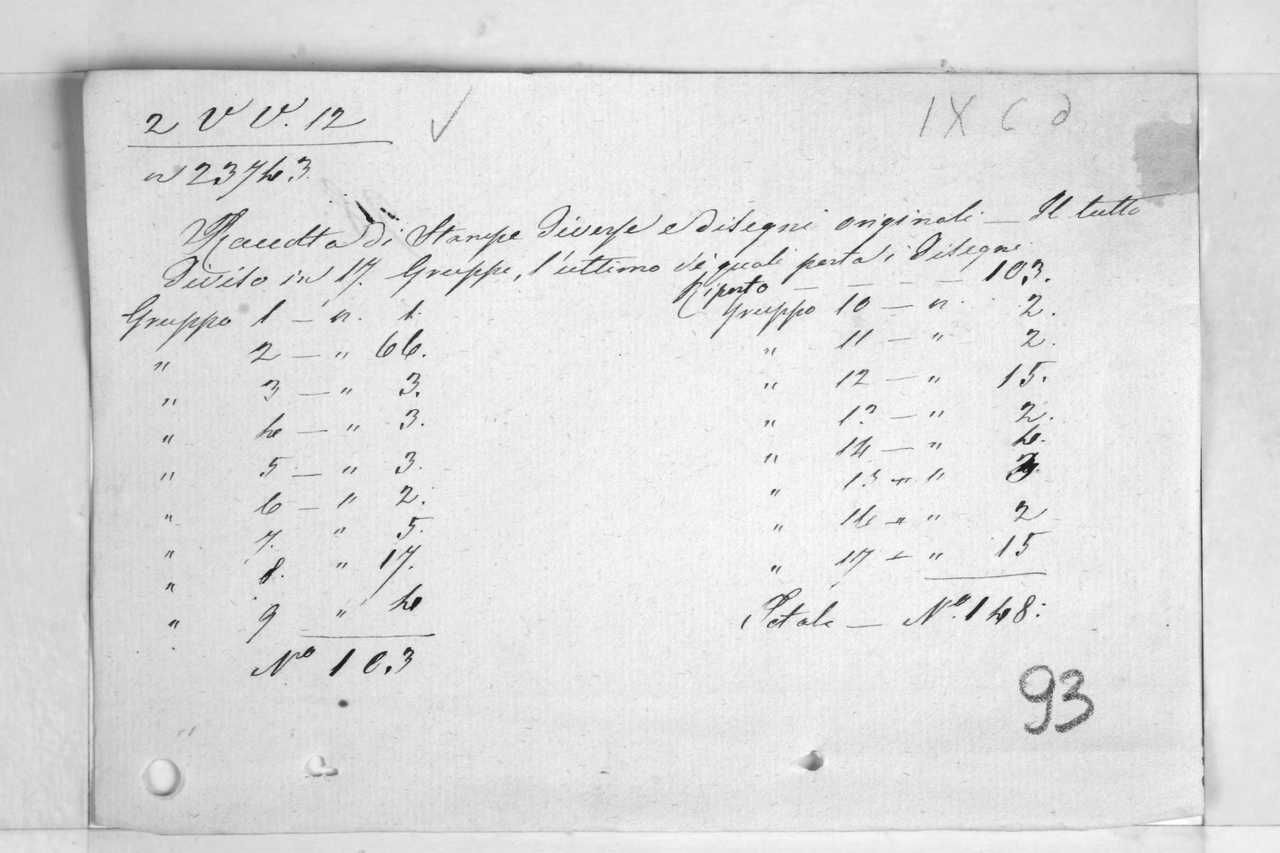 2 V V. 12
IX C d
n 23743
Raccolta di Stampe diverse e disegni originali — Il tutto
diviso in 17. Gruppi, l'ultimo de' quali porta i disegni
Gruppo 1 — n. 1.
" 2 — " 66.
" 3 — " 3.
" 4 — " 3.
" 5 — " 3.
" 6 — " 2.
" 7. " 5.
" 8. " 17.
" 9 " 4
No 103
Riporto — — — — 103.
Gruppo 10 — n. 2.
" 11 — " 2.
" 12 — " 15.
" 13 — " 2.
" 14 — " 4.
" 15 — " 3.
" 16 — " 2
" 17 — " 15
Totale — No. 148.
93